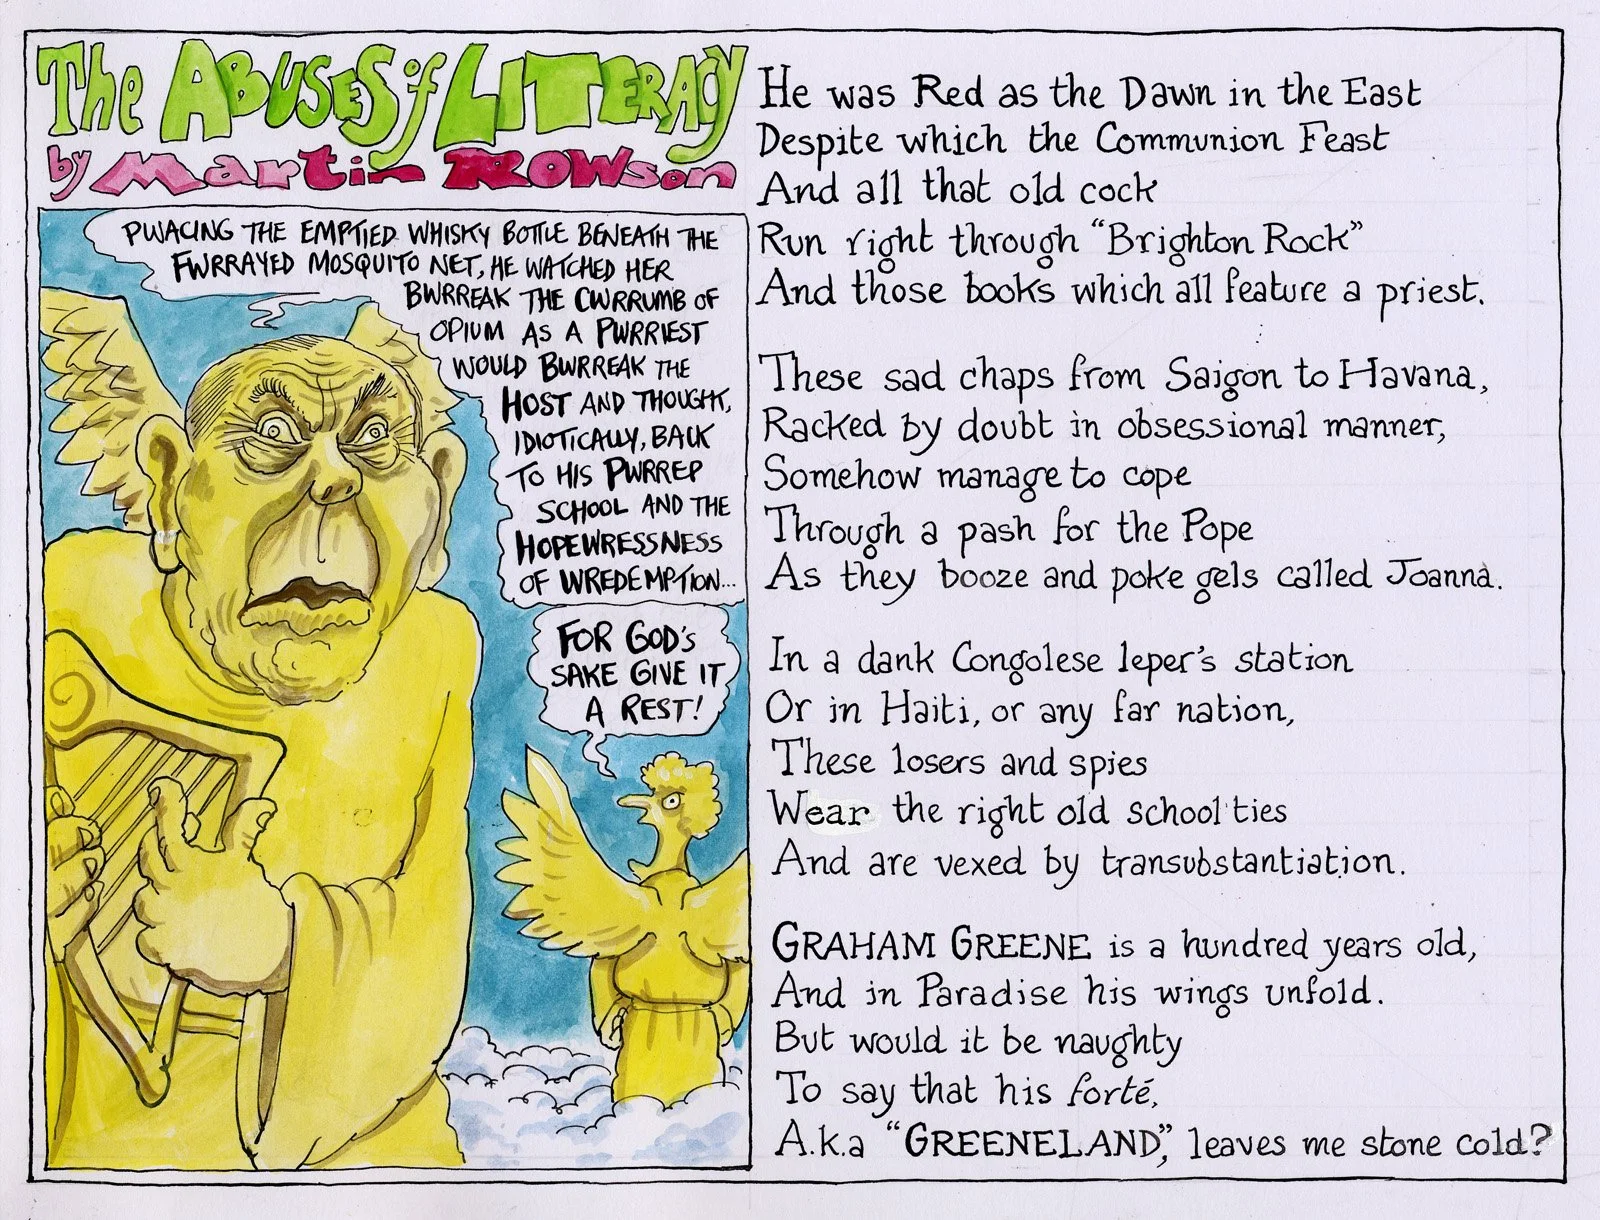 The ABUSES of LITERACY
by Martin Rowson
PWACING THE EMPTIED WHISKY BOTTLE BENEATH THE
FWRRAYED MOSQUITO NET, HE WATCHED HER
BWRREAK THE CWRRUMB OF
OPIUM AS A PWRRIEST
WOULD BWRREAK THE
HOST AND THOUGHT,
IDIOTICALLY, BACK
TO HIS PWRREP
SCHOOL AND THE
HOPEWRESSNESS
OF WREDEMPTION...
FOR GOD'S
SAKE GIVE IT
A REST!
He was Red as the Dawn in the East
Despite which the Communion Feast
And all that old cock
Run right through "Brighton Rock"
And those books which all feature a priest.
These sad chaps from Saigon to Havana,
Racked by doubt in obsessional manner,
Somehow manage to cope
Through a pash for the Pope
As they booze and poke gels called Joanna.
In a dank Congolese leper's station
Or in Haiti, or any far nation,
These losers and spies
Wear the right old school ties
And are vexed by transubstantiation.
GRAHAM GREENE is a hundred years old,
And in Paradise his wings unfold.
But would it be naughty
To say that his forté,
A.k.a "GREENELAND", leaves me stone cold?